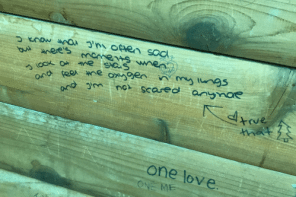 I know that I'm often sad
but there's moments
I look at the stars when
and feel the oxygen in my lungs
and I'm not scared anymore
true
that
one love